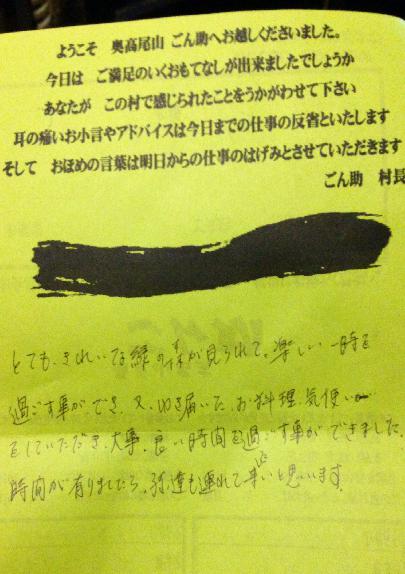 ようこそ 奥高尾山 ごん助へお越しくださいました。
今日は ご満足のいくおもてなしが出来ましたでしょうか
あなたが この村で感じられたことをうかがわせて下さい
耳の痛いお小言やアドバイスは今日までの仕事の反省といたします
そして おほめの言葉は明日からの仕事のはげみとさせていただきます
ごん助 村長
とても、きれいな緑の森が見られて、楽しい一時を
過ごす事ができ、又、いき届いた、お料理、気使い
をしていただき、大事、良い時間を過ごす事ができました。
時間が有りましたら、孫達も連れて来たいと思います。